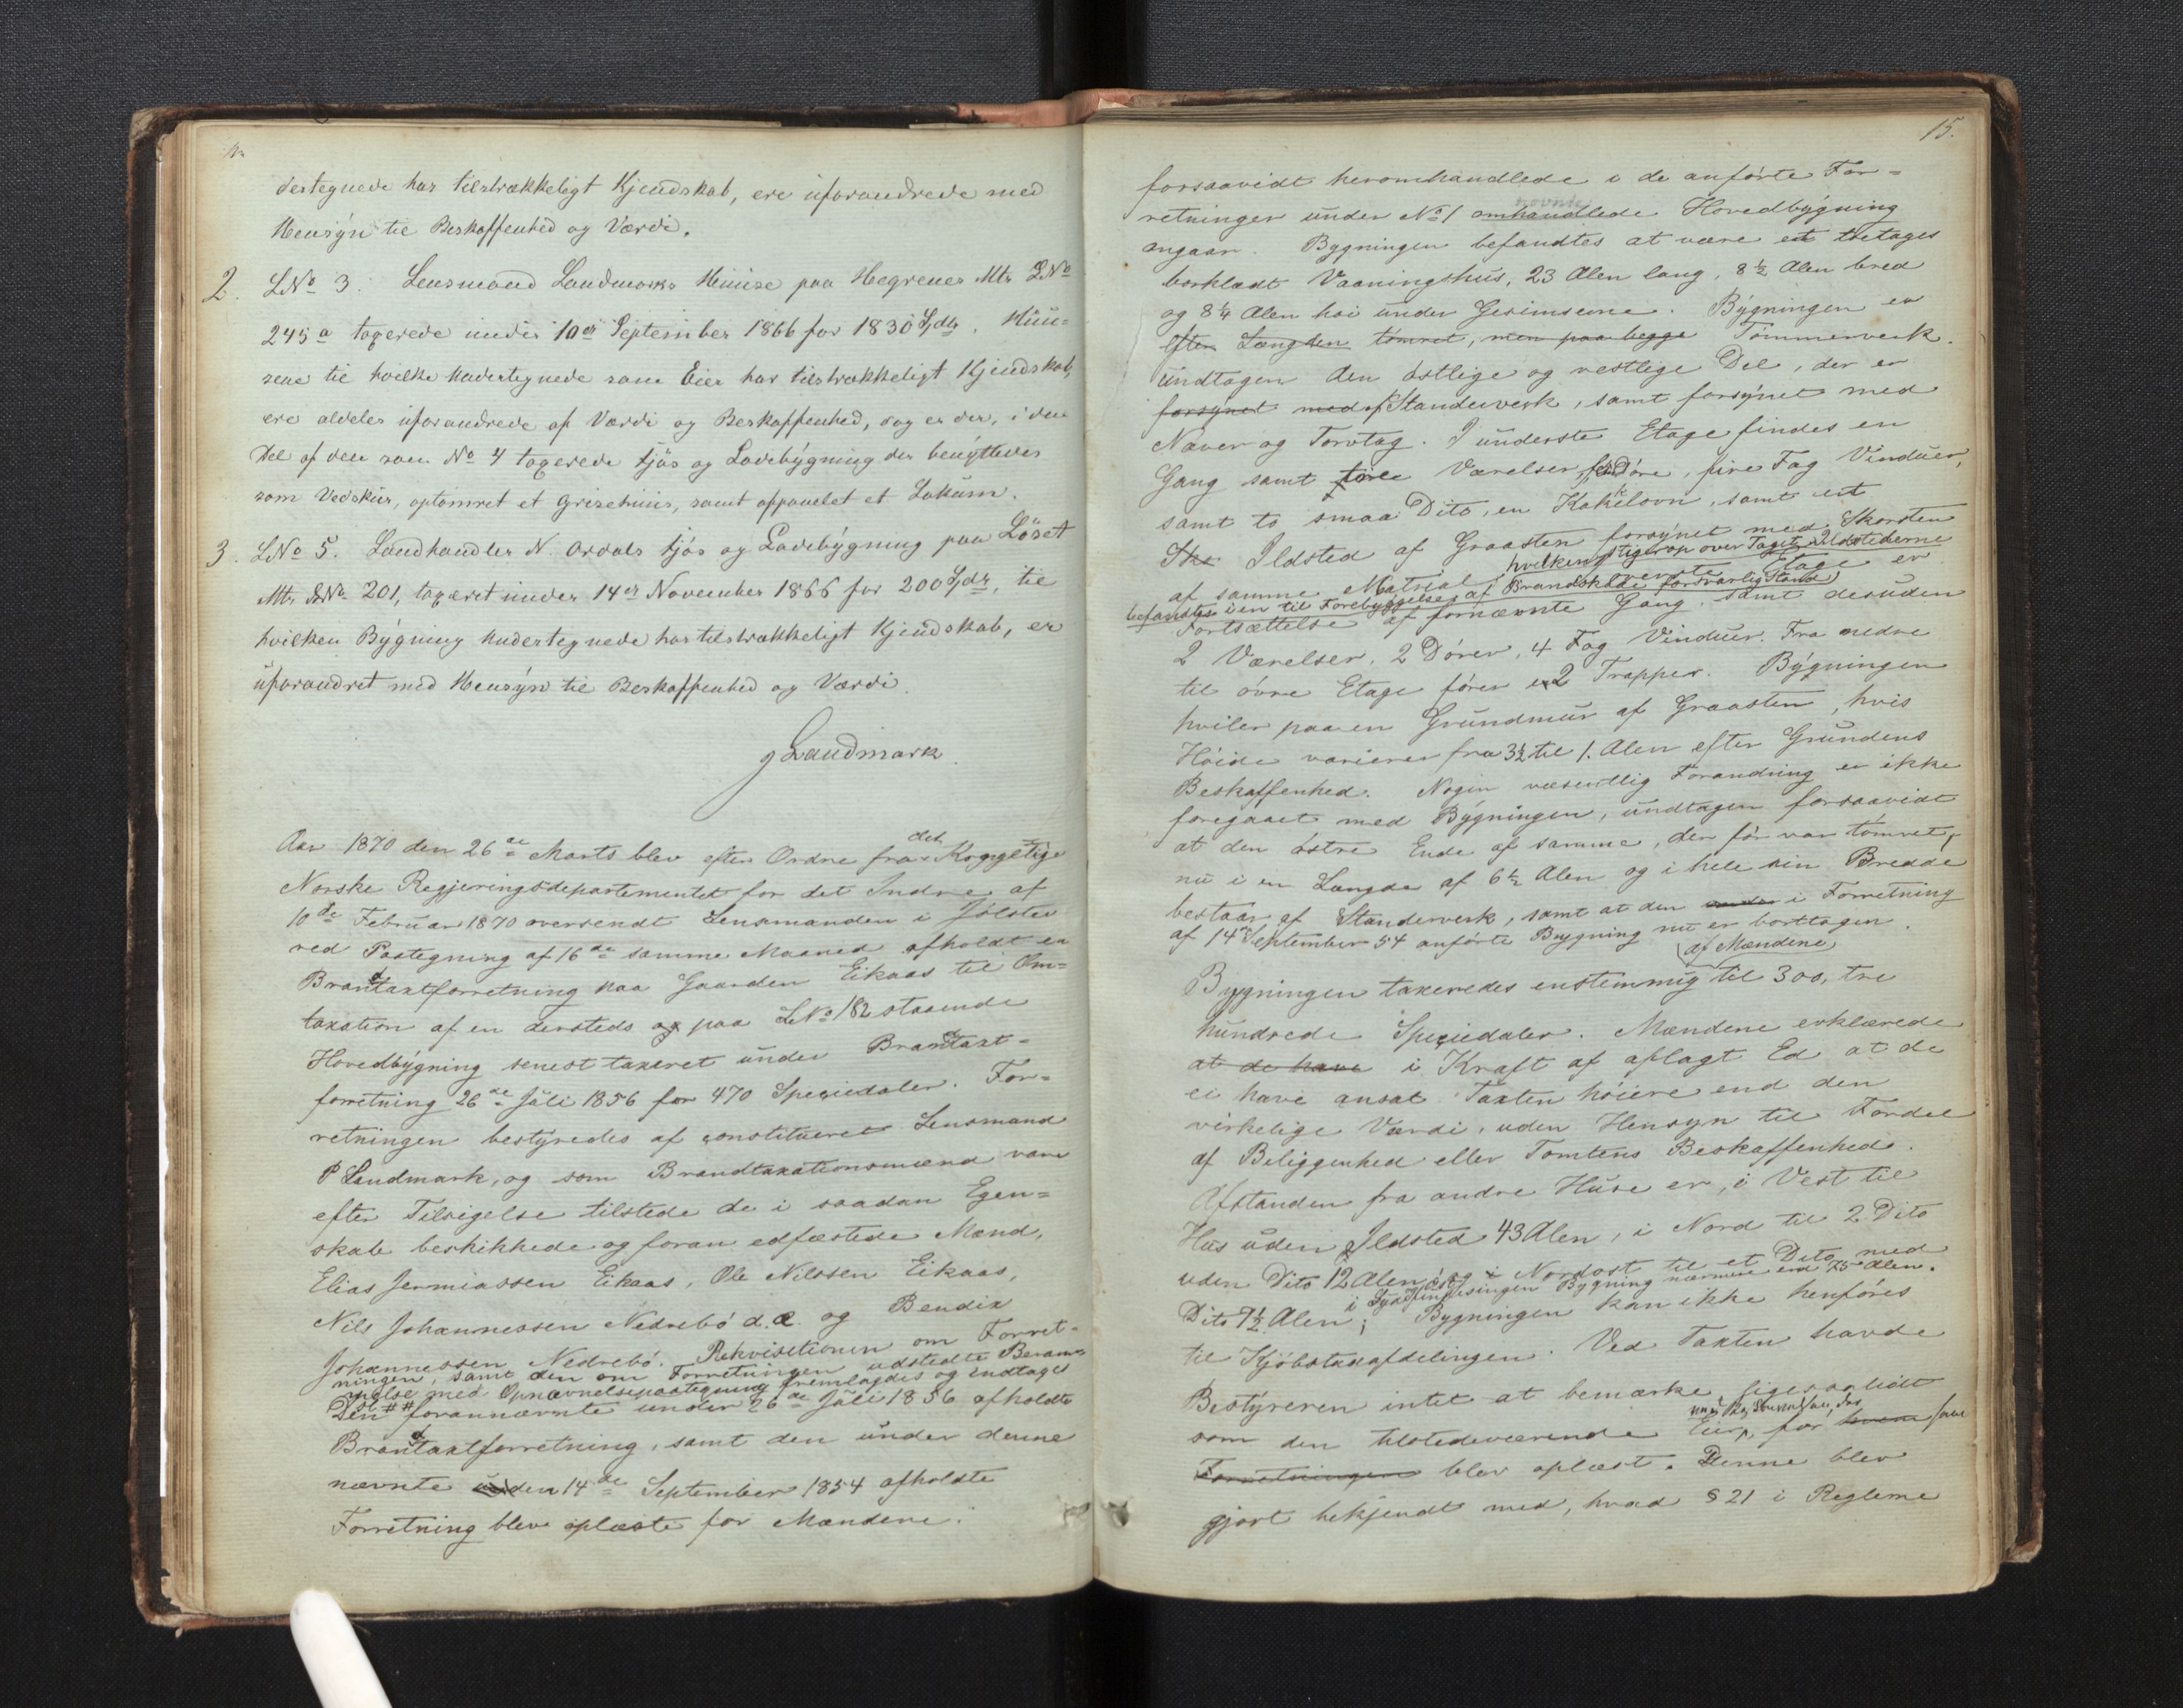 destegnede har tilstrækkeligt Kjendskab, ere uforandrede med
Hensyn til Beskaffenhed og Værdi.
2. LNo 3. Lensmand Landmarks Huuse paa Hegrenes Mtr LNo
245a taxerede under 10de September 1866 for 1830 Spdlr. Huu-
sene til hvilke Undertegnede som Eier har tilstrækkeligt Kjendskab,
ere aldeles uforandrede af Værdi og Beskaffenhed, dog er der, i den
Del af den som No 4 taxerede fjøs og Ladebygning der benyttedes
som Vedskur, optømret et Grisehuus, samt afpanelet et Lokum.
3. LNo 5. Landhandler N. Ordals fjøs og Ladebygning paa Løset
Mtr LNo 201, taxeret under 14de November 1866 for 200 Spdr, til
hvilken Bygning Undertegnede har tilstrækkeligt Kjendskab, er
uforandret med Hensyn til Beskaffenhed og Værdi.
Landmark
Aar 1870 den 26de Marts blev efter Ordre fra det Kongelige
Norske Regjeringsdepartementet for det Indre af
10de Februar 1870 oversendt Lensmanden i Jølster
ved Paategning af 16de samme Maaned afholdt en
Brandtaxtforretning paa Gaarden Eikaas til Om-
taxation af en dersteds og paa LNo 182 staaende
Hovedbygning senest taxeret under Brandtaxt-
forretning 26de Juli 1856 for 470 Speciedaler. For-
retningen bestyredes af constitueret Lensmand
P Landmark, og som Brandtaxationsmænd vare
efter Tilsigelse tilstede de i saadan Egen-
skab beskikkede og foran edfæstede Mænd,
Elias Jermiassen Eikaas, Ole Nilssen Eikaas,
Nils Johannessen Nedrebø d.æ. og Bendix
Johannessen Nedrebø. Rekvisitionen om Forret-
ningen, samt den om Forretningen udstedte Beram-
melse med Opnævnelsepaategning fremlagdes og indtages
Den forannævnte under 26de Juli 1856 afholdte
Brandtaxtforretning, samt den under denne
nævnte den 14de September 1854 afholdte
Forretning bleve oplæste for Mændene.
15.
forsaavidt heromhandlede i de anførte For-
retninger under No 1 omhandlede nævnte Hovedbygning
angaar. Bygningen befandtes at være et toetages
bordklædt Vaaningshus, 23 Alen lang, 8½ Alen bred
og 8¼ Alen høi under Gesimserne. Bygningen er
efter Længden tømret, men paa begge Tømmerverk.
undtagen den østlige og vestlige Del, der er
forsynet med af Standerverk, samt forsynet med
Næver og Torvtag. I underste Etage findes en
Gang samt Værelser Døre, fire Fag Vinduer,
samt to smaa Dito, en Kakelovn, samt et
Ildsted af Graasten forsynet med Skorsten
af samme Matrial, hvilken stiger op over Taget. Ildstederne
befandtes i en til Forebyggelse af Brandskade forsvarlig Stand
øverste Etage er
Fortsættelse af fornævnte Gang, samt desuden
2 Værelser, 2 Døren, 4 Fag Vinduer. Fra nedre
til øvre Etage fører 2 Trapper. Bygningen
hviler paa en Grundmur af Graasten, hvis
Høide varierer fra 3½ til 1. Alen efter Grundens
Beskaffenhed. Nogen væsentlig Forandring er ikke
foregaaet med Bygningen, undtagen forsaavidt
at den østre Ende af samme, der før var tømret,
nu i en Længde af 6½ Alen og i hele sin Bredde
bestaar af Standerverk, samt at den i Forretning
af 14de September 54 anførte Bygning nu er borttagen.
af Mændene
Bygningen taxeredes enstemmig til 300, tre
hundrede Speciedaler. Mændene erklærede
at de have i Kraft af aflagt Ed at de
ei have ansat Taxten høiere end den
virkelige Værdi, uden Hensyn til Fordel
af Beliggenhed eller Tomtens Beskaffenhed.
Afstanden fra andre Huse er, i Vest til
Hus uden Ildsted 43 Alen, i Nord til 2 Dito
uden Dito 12 Alen, og i Nordost til et Dito med
i Syd findes ingen Bygning nærmere end 75 Alen.
Dito 7½ Alen; Bygningen kan ikke henføres
til Kjøbstadafdelingen. Ved Taxten havde
Bestyreren intet at bemærke, ligesaalidt
som den tilstedeværende Eier, for hvem
Forretningen blev oplæst. Denne blev
gjort bekjendt med, hvad § 21 i Reglerne